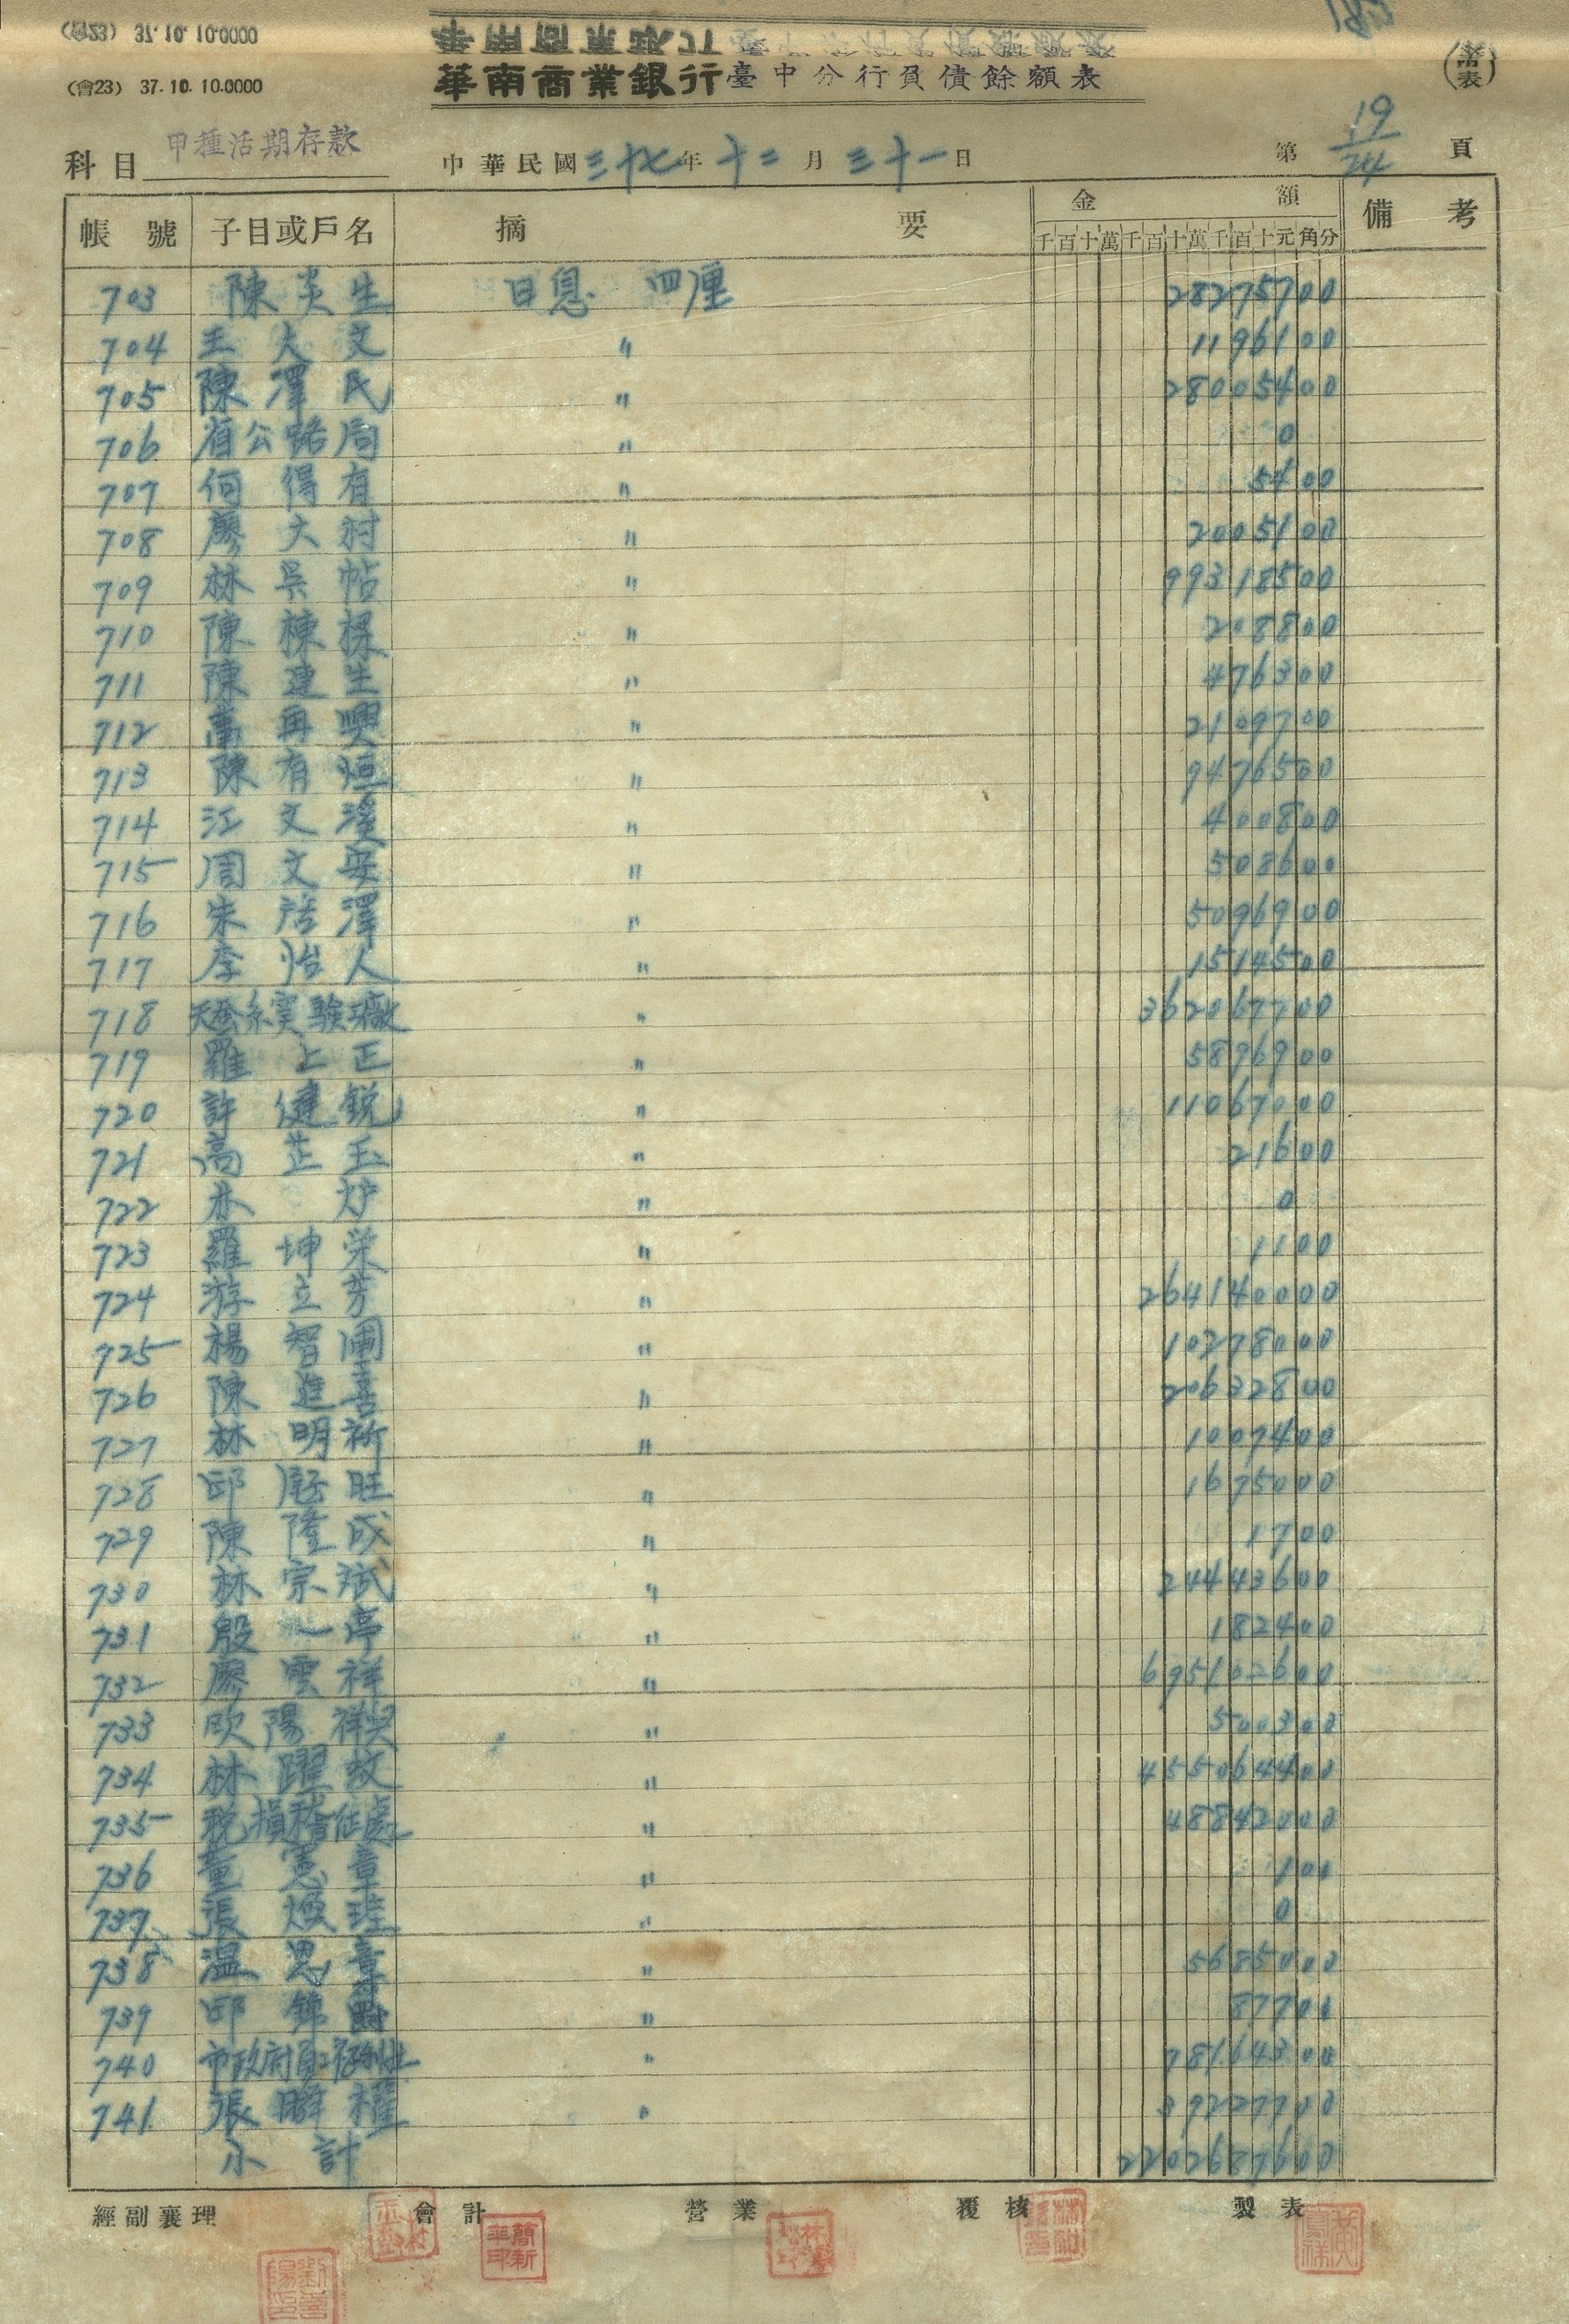 (會23) 37.10.10.0000
華南商業銀行臺中分行負債餘額表
科目 甲種活期存款 中華民國三十七年十二月三十一日 第 19/24 頁
帳號 子目或戶名 摘要 金額 備考
千百十萬千百十萬千百十元角分
703 陳炎生 日息 四厘 28275700
704 王大文 〃 1196100
705 陳澤民 〃 28005400
706 省公路局 〃 0
707 何得有 〃 5400
708 廖大村 〃 2005100
709 林吳帖 〃 99318500
710 陳棟樑 〃 208800
711 陳連生 〃 476300
712 萬再興 〃 2109700
713 陳有烜 〃 9476500
714 江文溪 〃 400800
715 周文安 〃 508600
716 朱活澤 〃 5096900
717 李怡人 〃 1514500
718 天蚕糸實驗廠 〃 362067700
719 羅上正 〃 5896900
720 許健銳 〃 11067000
721 高芷玉 〃 21600
722 林炉 〃 0
723 羅坤榮 〃 1100
724 游立芳 〃 264140000
725 楊智圃 〃 10278000
726 陳進喜 〃 20632800
727 林明祈 〃 1007400
728 邱 旺 〃 1675000
729 陳隆成 〃 1700
730 林宗斌 〃 24443600
731 殷一亭 〃 182400
732 廖雲祥 〃 695102600
733 欧陽 〃 500300
734 林躍 〃 455064400
735 稅捐稽征處 〃 48842000
736 董憲章 〃 101
737 張煥 〃 0
738 溫 章 〃 5685000
739 邱錦爵 〃 87701
740 市政府員工福利社 〃 78164300
741 張 權 〃 39227700
小計 2202687600
經副襄理 會計 營業 覆核 製表